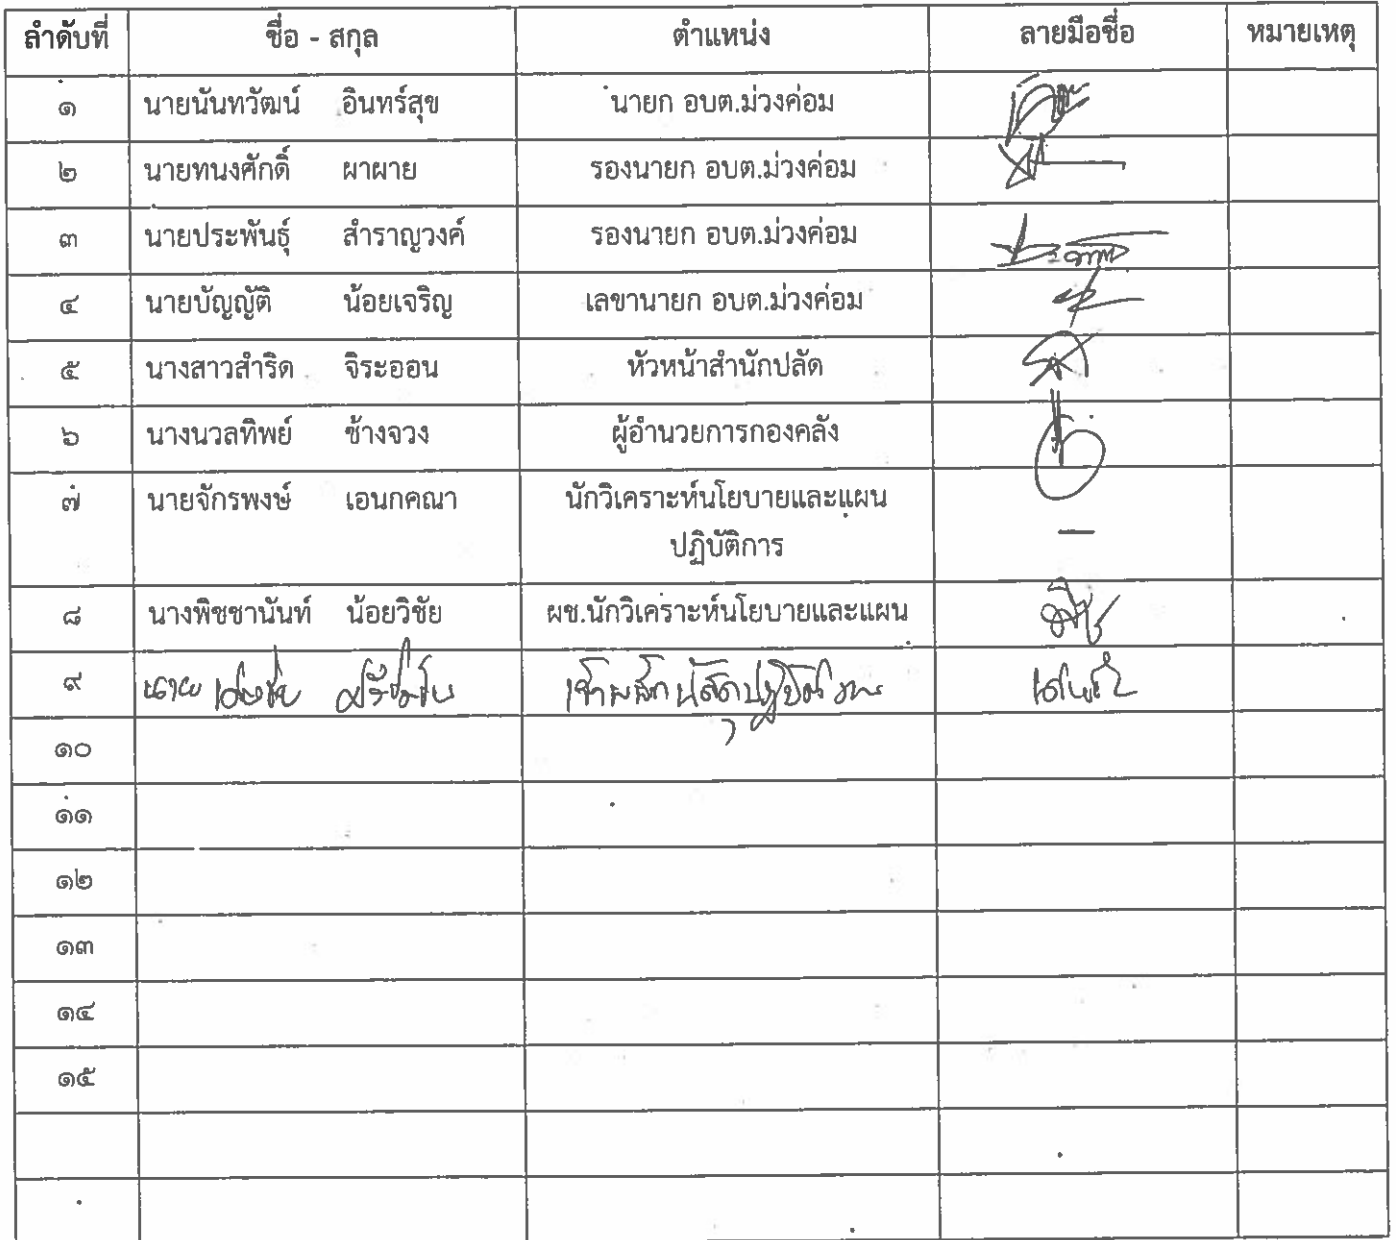 ลำดับที่ ชื่อ - สกุล ตำแหน่ง ลายมือชื่อ หมายเหตุ
๑ นายนันทวัฒน์ อินทร์สุข นายก อบต.ม่วงค่อม
๒ นายทนงศักดิ์ ผาผาย รองนายก อบต.ม่วงค่อม
๓ นายประพันธุ์ สำราญวงค์ รองนายก อบต.ม่วงค่อม
๔ นายบัญญัติ น้อยเจริญ เลขานายก อบต.ม่วงค่อม
๕ นางสาวสำริด จิระออน หัวหน้าสำนักปลัด
๖ นางนวลทิพย์ ช้างจวง ผู้อำนวยการกองคลัง
๗ นายจักรพงษ์ เอนกคณา นักวิเคราะห์นโยบายและแผน
ปฏิบัติการ —
๘ นางพิชชานันท์ น้อยวิชัย ผช.นักวิเคราะห์นโยบายและแผน
๙ นาย
๑๐
๑๑
๑๒
๑๓
๑๔
๑๕